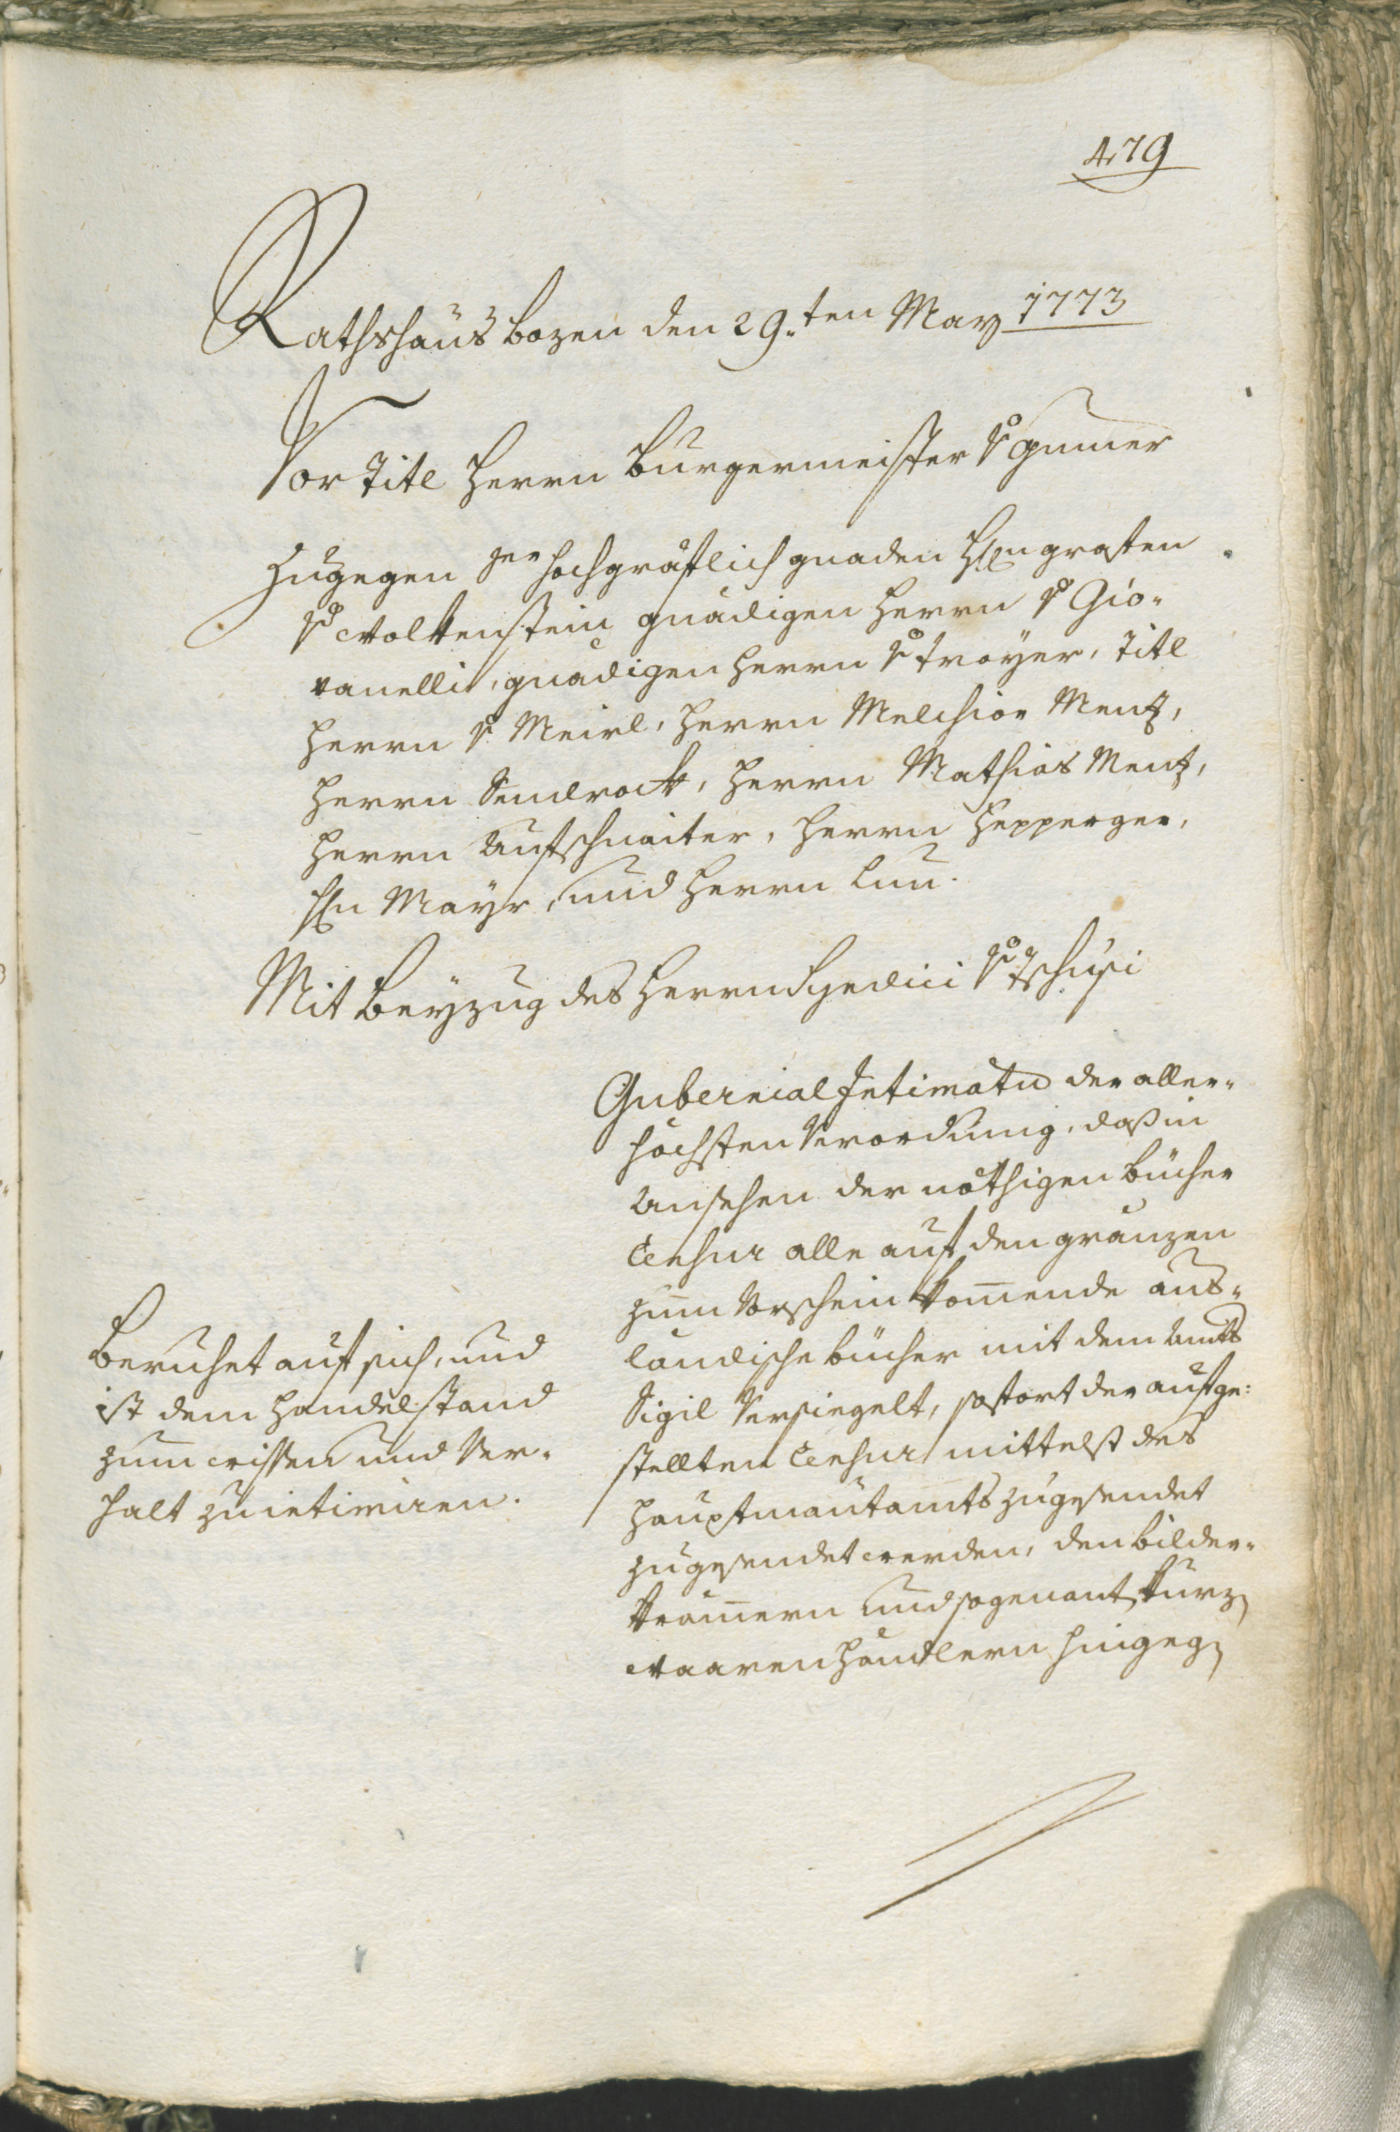 479
Rathshaus Bozen den 29.ten May 1773
Vor Titl Herrn Burgermeister v Gumer
Zugegen Ihro hochgräflich gnaden Herrn grafen
v Wolkenstein gnädigen Herrn v Gio-
vanelli, gnädigen Herrn v Troyer, Titl
Herrn v Meirl, Herrn Melchior Menz,
Herrn Sendrock, Herrn Mathias Menz,
Herrn Aufschnaiter, Herrn Hepperger,
Hrn Mayr, und Herrn Lun.
Mit Beyzug des Herrn Syndici v Tschusi
Gubernial Intimatum der aller-
höchsten Verordnung, daß in
Ansehen der nöthigen bücher
Censur alle auf den gränzen
zum Vorschein kommende aus-
ländische bücher mit dem Amts
Sigil Versiegelt, sofort der aufge:
stellten Censur mittelst des
Hauptmautamts zugesendet
zugesendet werden, den bilder-
krämern und sogenant kurz
waarenhändlern hingegen
Beruhet auf sich, und
ist dem Handelstand
zum wissen und Ver-
halt zu intimiren.